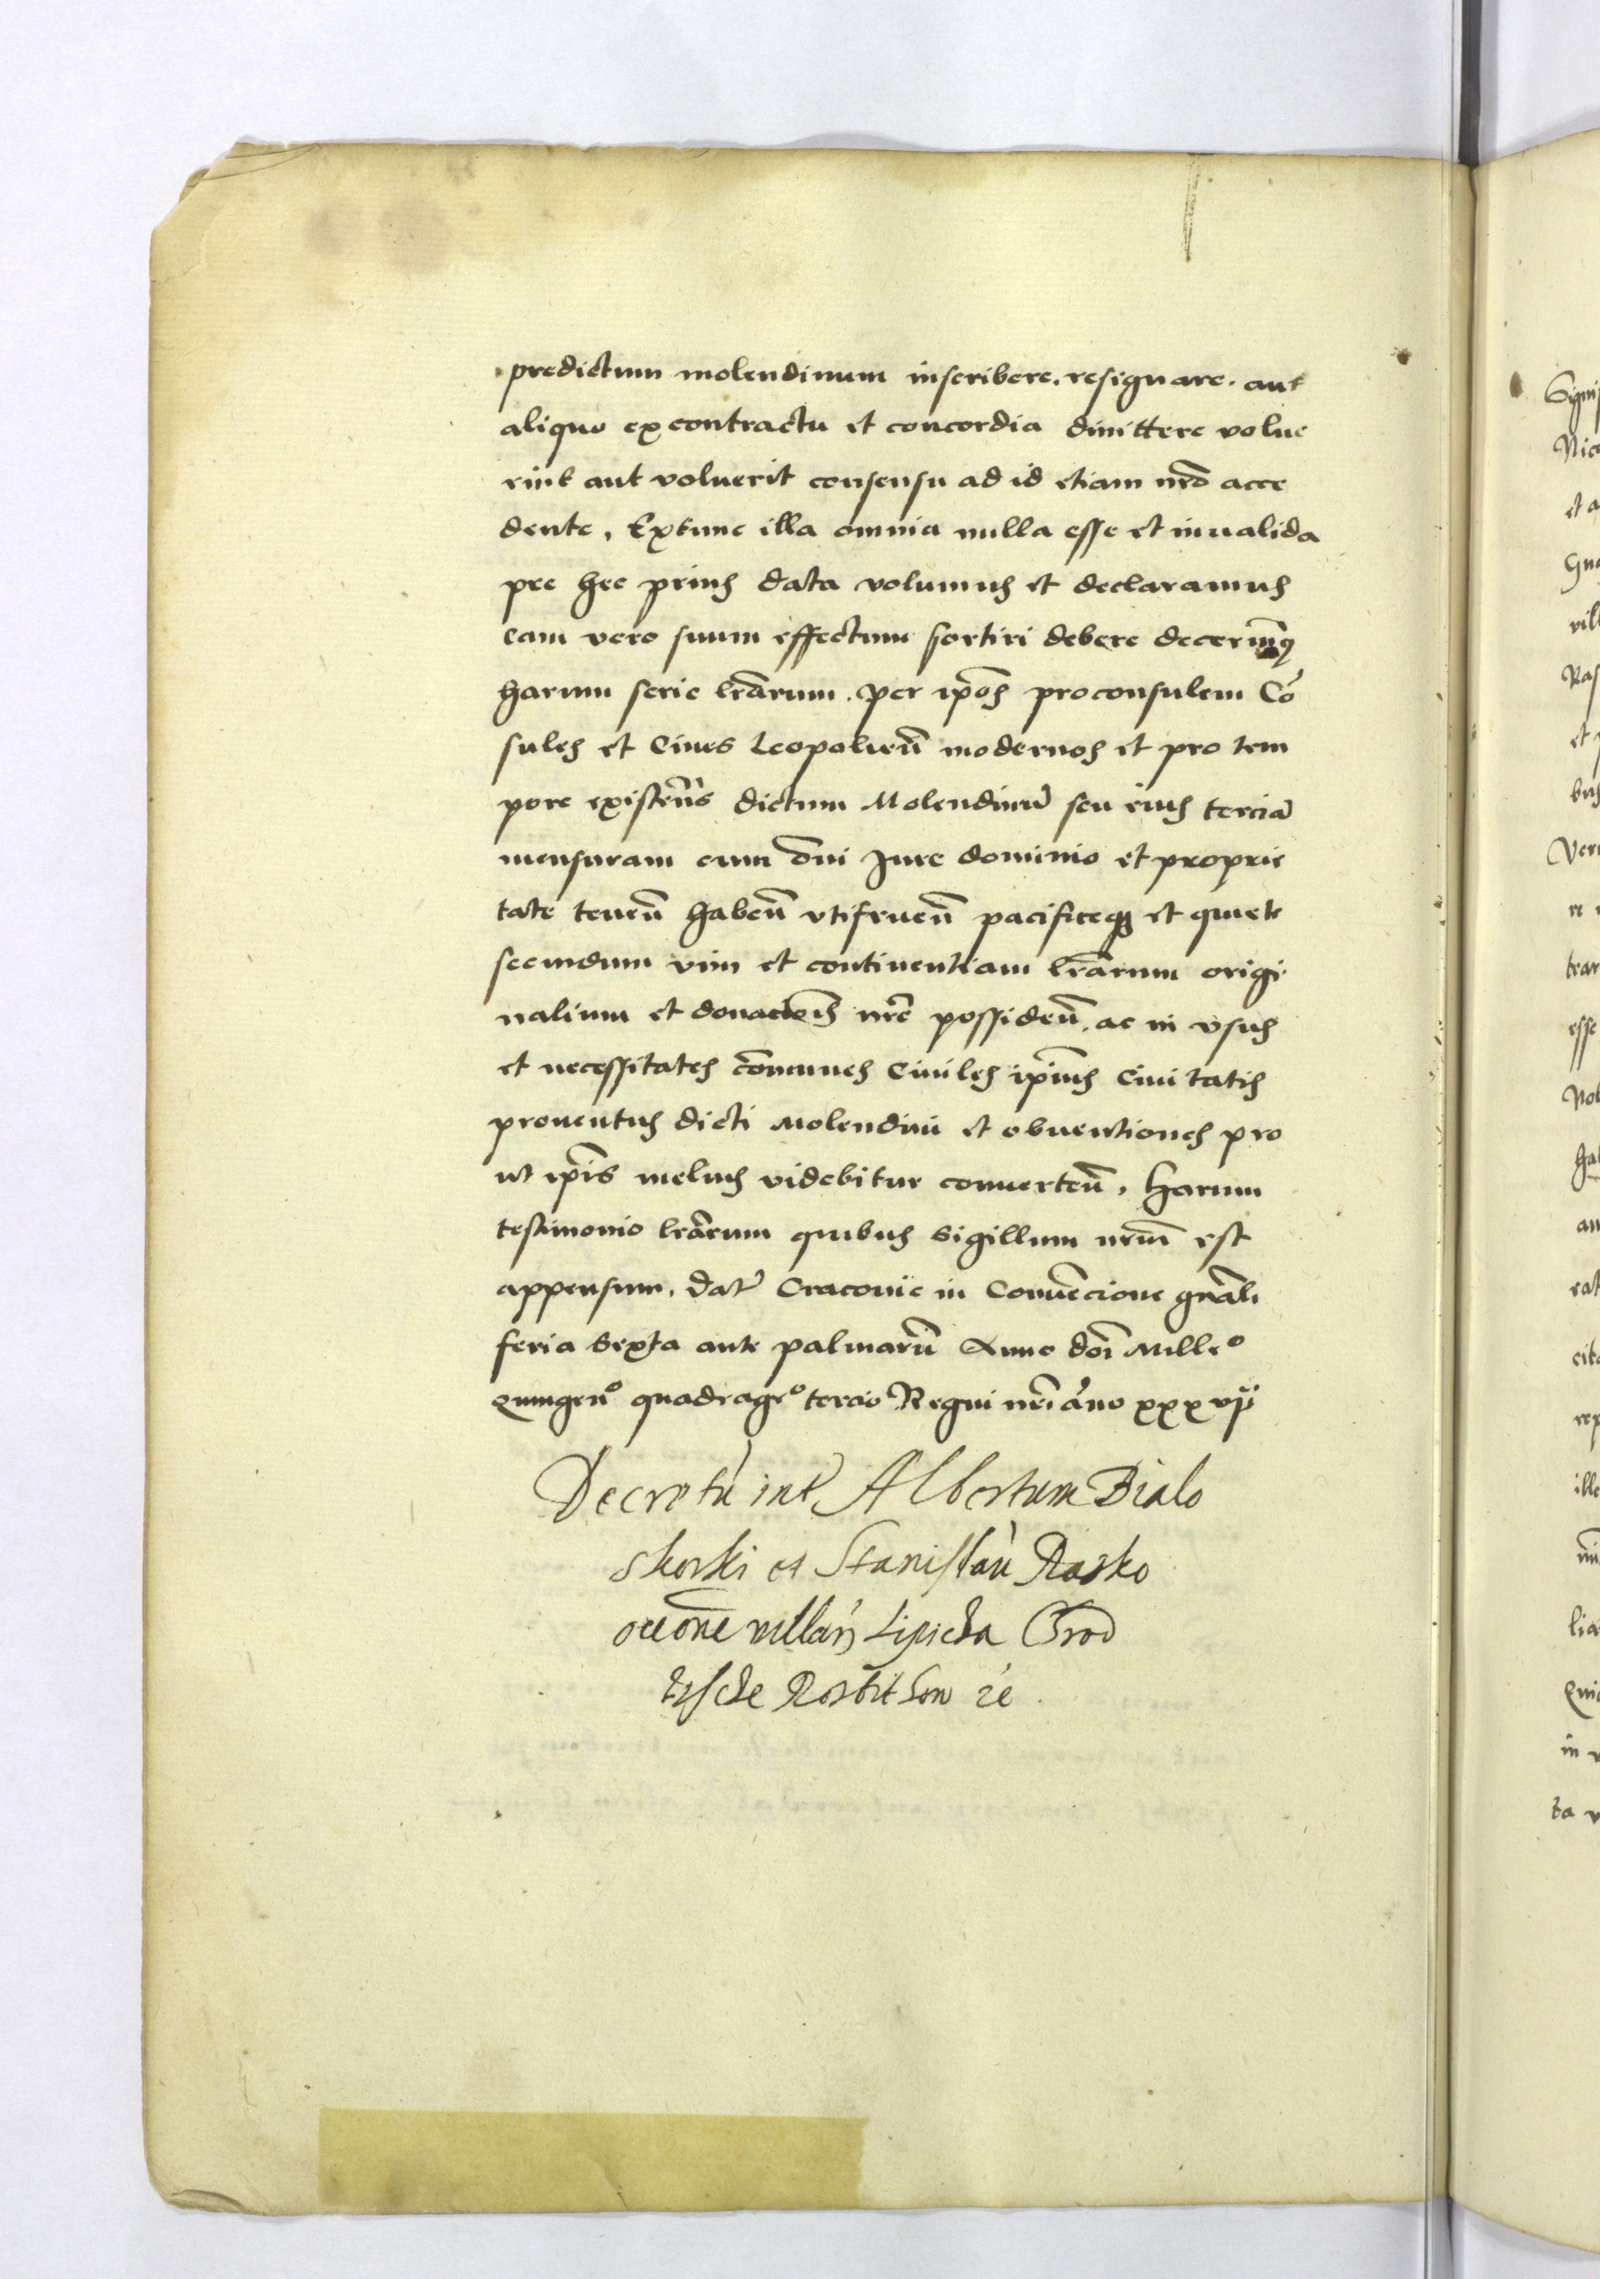 predictum molendinum inscribere. resignare. aut
aliquo ex contractu et concordia dimittere volue
rint aut voluerit consensu ad id etiam nrō acce
dente, Extunc illa omnia nulla esse et inualida
pre hec prius data volumus et declaramus
eam vero suum effectum sortiri debere decernimꝰ
harum serie lrārum. per ip̄os proconsulem Cō
sules et Ciues Leopolien̄ modernos et pro tem
pore existen̄s dictum Molendinū seu eius terciā
mensuram cum om̄i Jure dominio et proprie
tate tenen̄ haben̄ vtifruen̄ pacificeqꝫ et quiete
secundum vim et continentiam lrārum origi
nalium et donacōis nrē possiden̄. ac in vsus
et necessitates cōmunes Ciuiles ip̄ius Ciuitatis
prouentus dicti Molendini et obuentiones pro
ut ip̄is melius videbitur conuerten̄. harum
testimonio lrārum quibus Sigillum nrūm est
appensum. Dat̄ Cracouie in Conuēcione gnāli
feria Sexta ante palmarū Anno dōi Milleº
Quingenº quadrageº tercio Regni nrī āno xxxvij
Decretū int̄ Albertum Bialo
skorski et Stanislaū Rasko
occōne villar̄ Lipicza